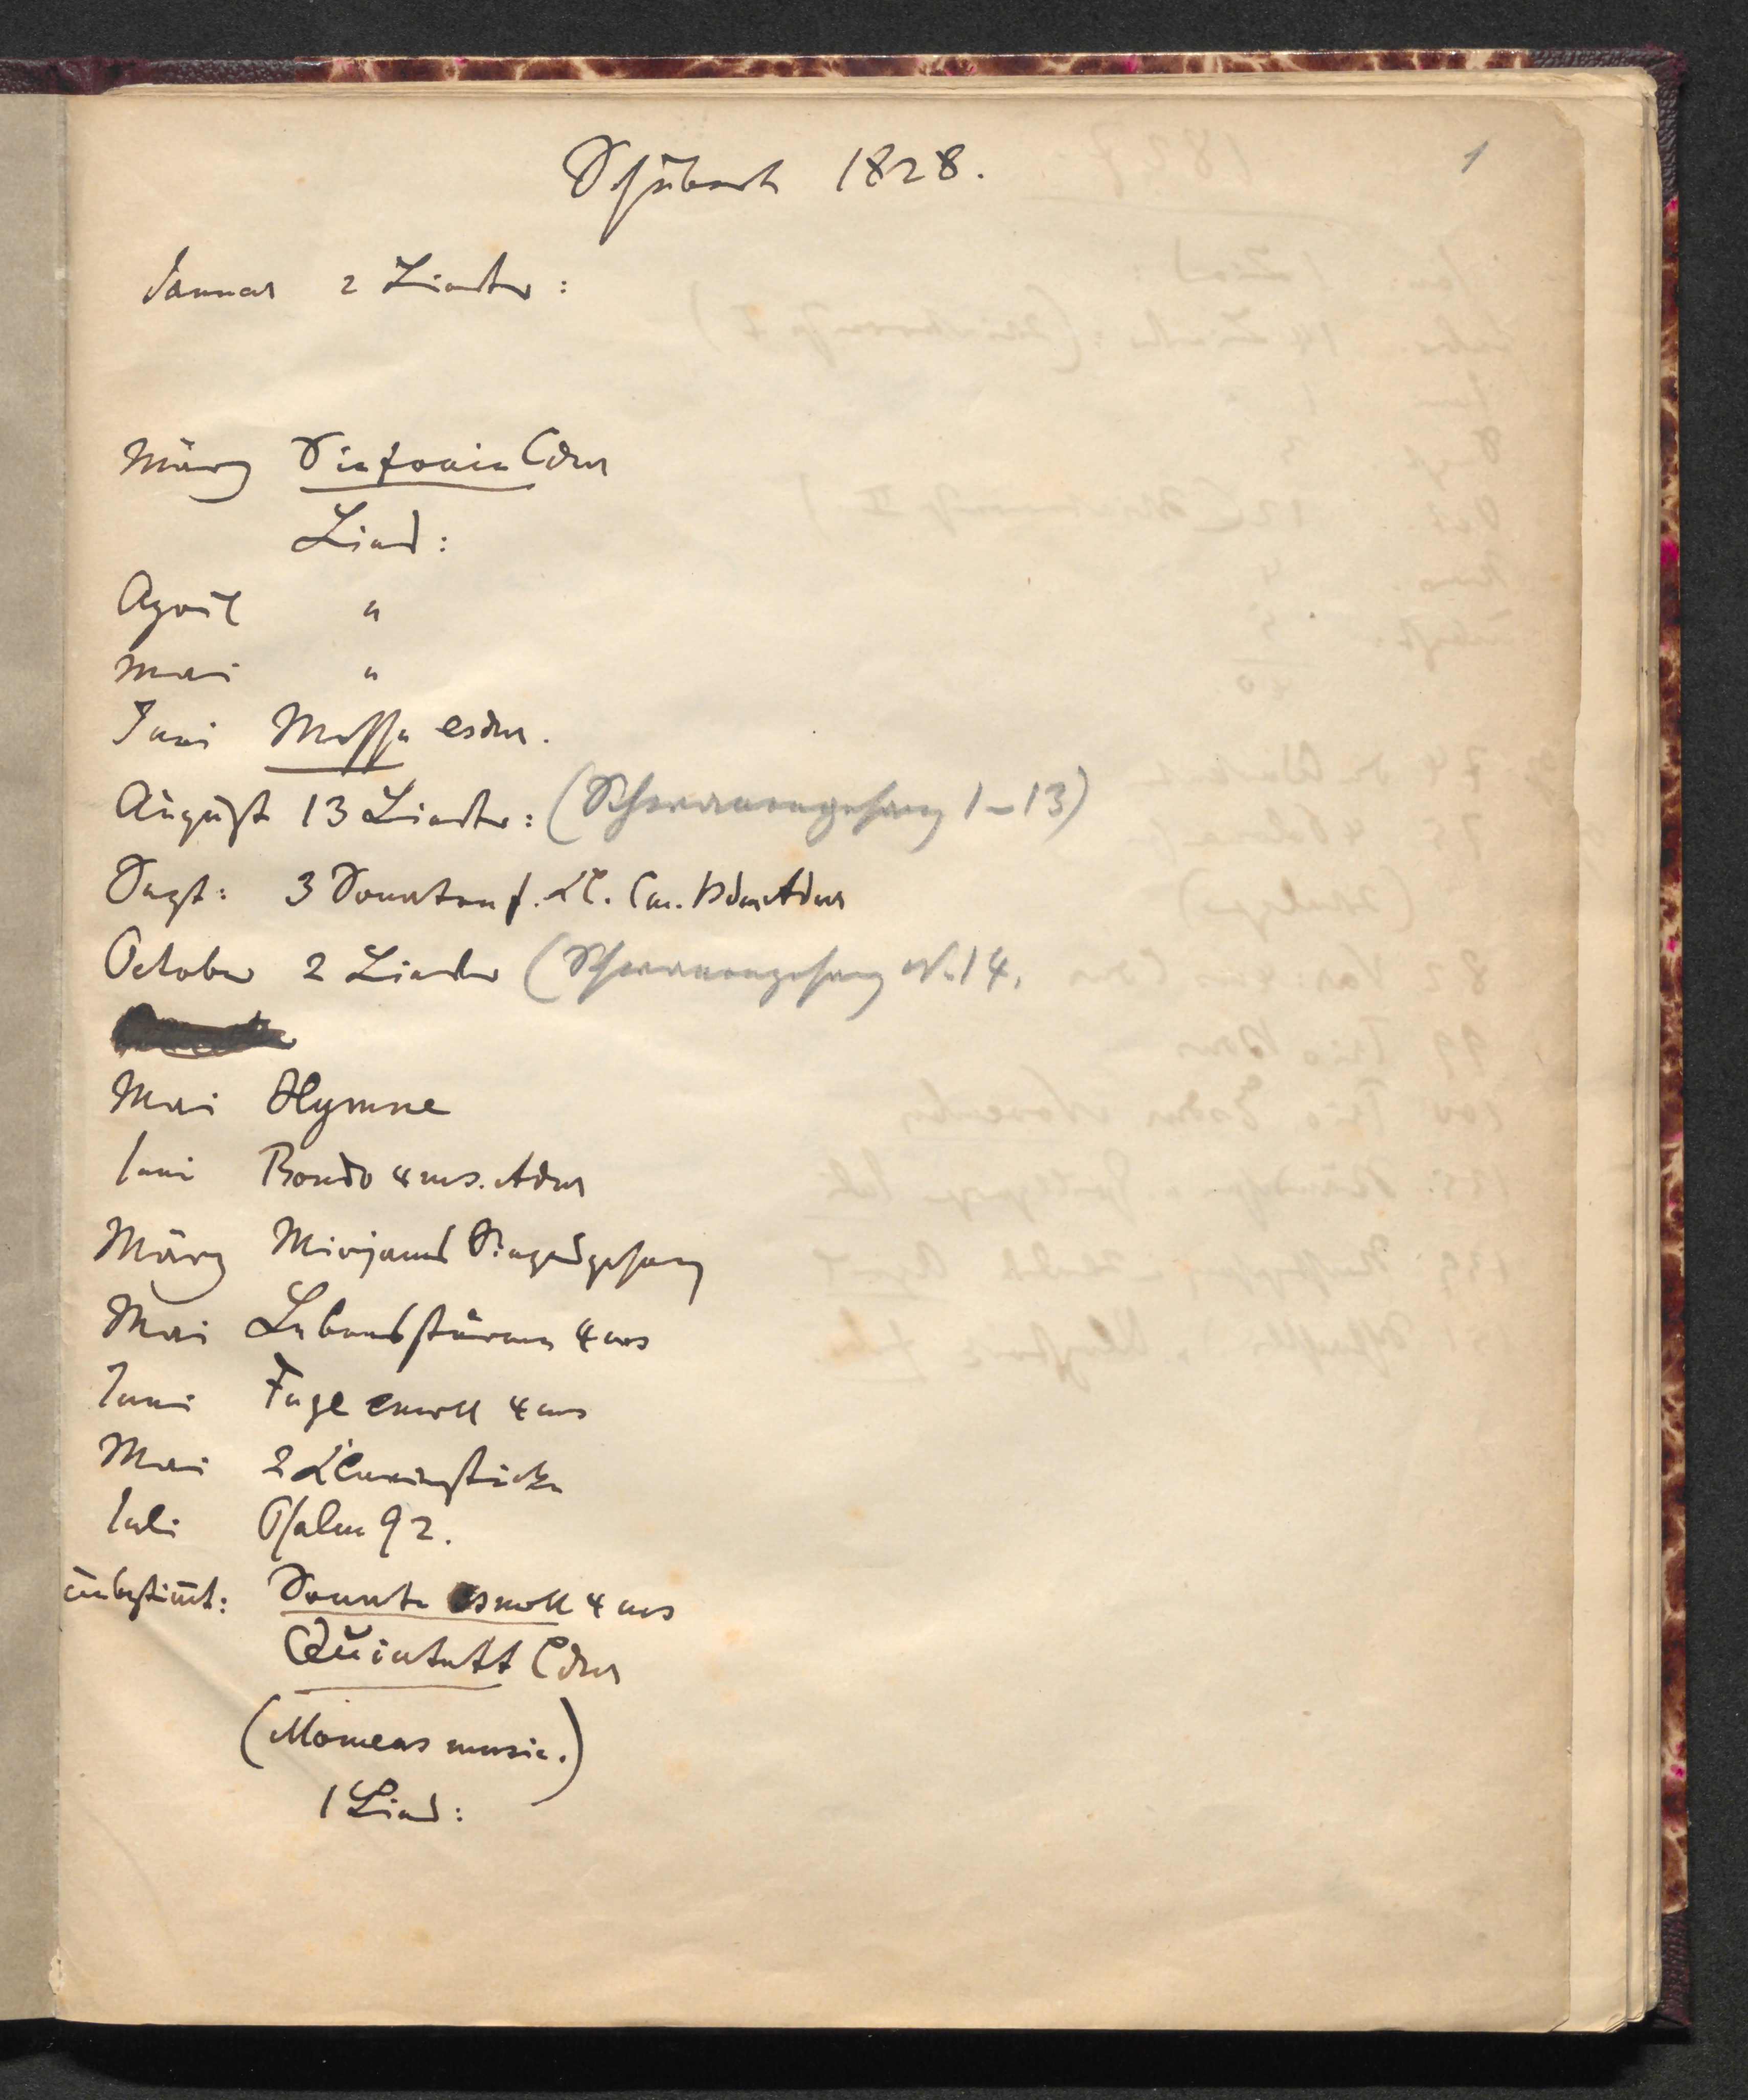 Schubert 1828.
1
Januar 2 Lieder:
März Sinfonie Cdur
Lied:
April "
Mai "
Juni Messe esdur.
August 13 Lieder: (Schwanengesang 1–13)
Sept: 3 Sonaten f. Kl. Cm. Bdur Adur
October 2 Lieder (Schwanengesang No. 14.
Mai Hymne
Juni Rondo 4ms. Adur
März Mirjams Siegesgesang
Mai Lebensstürme 4ms
Juni Fuge emoll 4ms
Mai 2 Klavierstücke
Juli Psalm 92.
unbestimt: Sonate moll 4ms
Quintett Cdur
(Momens music.)
1 Lied: